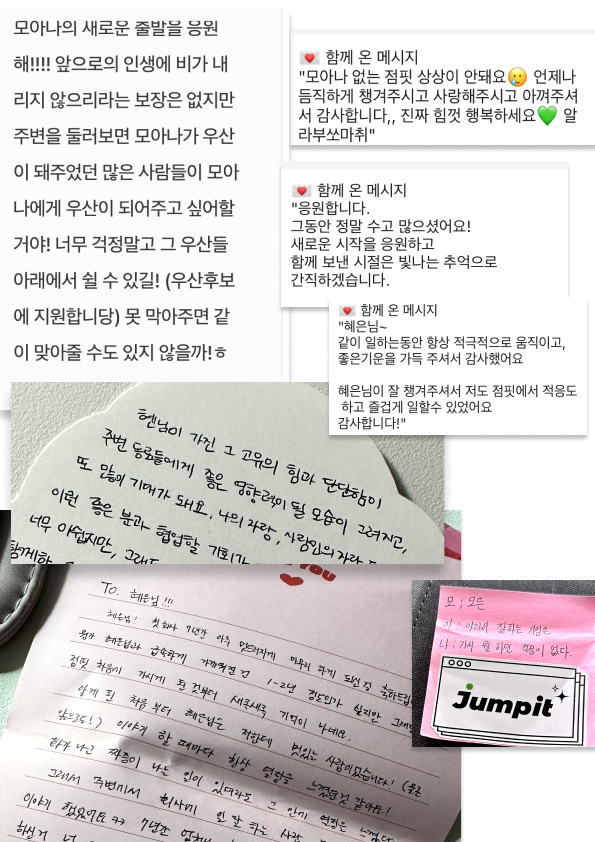 모아나의 새로운 출발을 응원
해!!!! 앞으로의 인생에 비가 내
리지 않으리라는 보장은 없지만
주변을 둘러보면 모아나가 우산
이 돼주었던 많은 사람들이 모아
나에게 우산이 되어주고 싶어할
거야! 너무 걱정말고 그 우산들
아래에서 쉴 수 있길! (우산후보
에 지원합니당) 못 막아주면 같
이 맞아줄 수도 있지 않을까!ㅎ
💌 함께 온 메시지
"모아나 없는 점핏 상상이 안돼요🥲 언제나
듬직하게 챙겨주시고 사랑해주시고 아껴주셔
서 감사합니다,, 진짜 힘껏 행복하세요💚 알
라부쏘마취"
💌 함께 온 메시지
"응원합니다.
그동안 정말 수고 많으셨어요!
새로운 시작을 응원하고
함께 보낸 시절은 빛나는 추억으로
간직하겠습니다.
💌 함께 온 메시지
"혜은님~
같이 일하는동안 항상 적극적으로 움직이고,
좋은기운을 가득 주셔서 감사했어요
혜은님이 잘 챙겨주셔서 저도 점핏에서 적응도
하고 즐겁게 일할수 있었어요
감사합니다!"
헨님이 가진 그 고유의 힘과 단단함이
주변 동료들에게 좋은 영향력이 될 모습이 그려지고,
또 만들 기대가 돼요. 나의 자랑, 사람인의 자랑
이런 좋은 분과 협업할 기회가
너무 아쉽지만, 그래도
함께한
YOU
To. 혜은님!!!
혜은님! 첫회사 7년간 아주 멋드러지게 마무리 하게 되신걸 축하드립
뭔가 혜은님과 급속하게 가까워진건 1-2년 정도인거 같지만
점핏 처음에 가시게 된 것부터 새록새록 기억이 나네요.
알게 된 처음부터 혜은님은 저한테 멋있는 사람이었습니다! (물론
이야기 할 때마다 항상 열정을 느꼈던것 같아요!
화가 나고 짜증이 나는 일이 있더라도 그 안의 열정은
그래서 주변에서 회사에서 일 잘 하는 사람
이야기 했었어요 ㅋㅋ 7년간
하실거 너
모 ; 모든
아 ; 아라서 잘하는 사람은
나 ; 가서 뭘 하던 걱정이 없다.
Jumpit